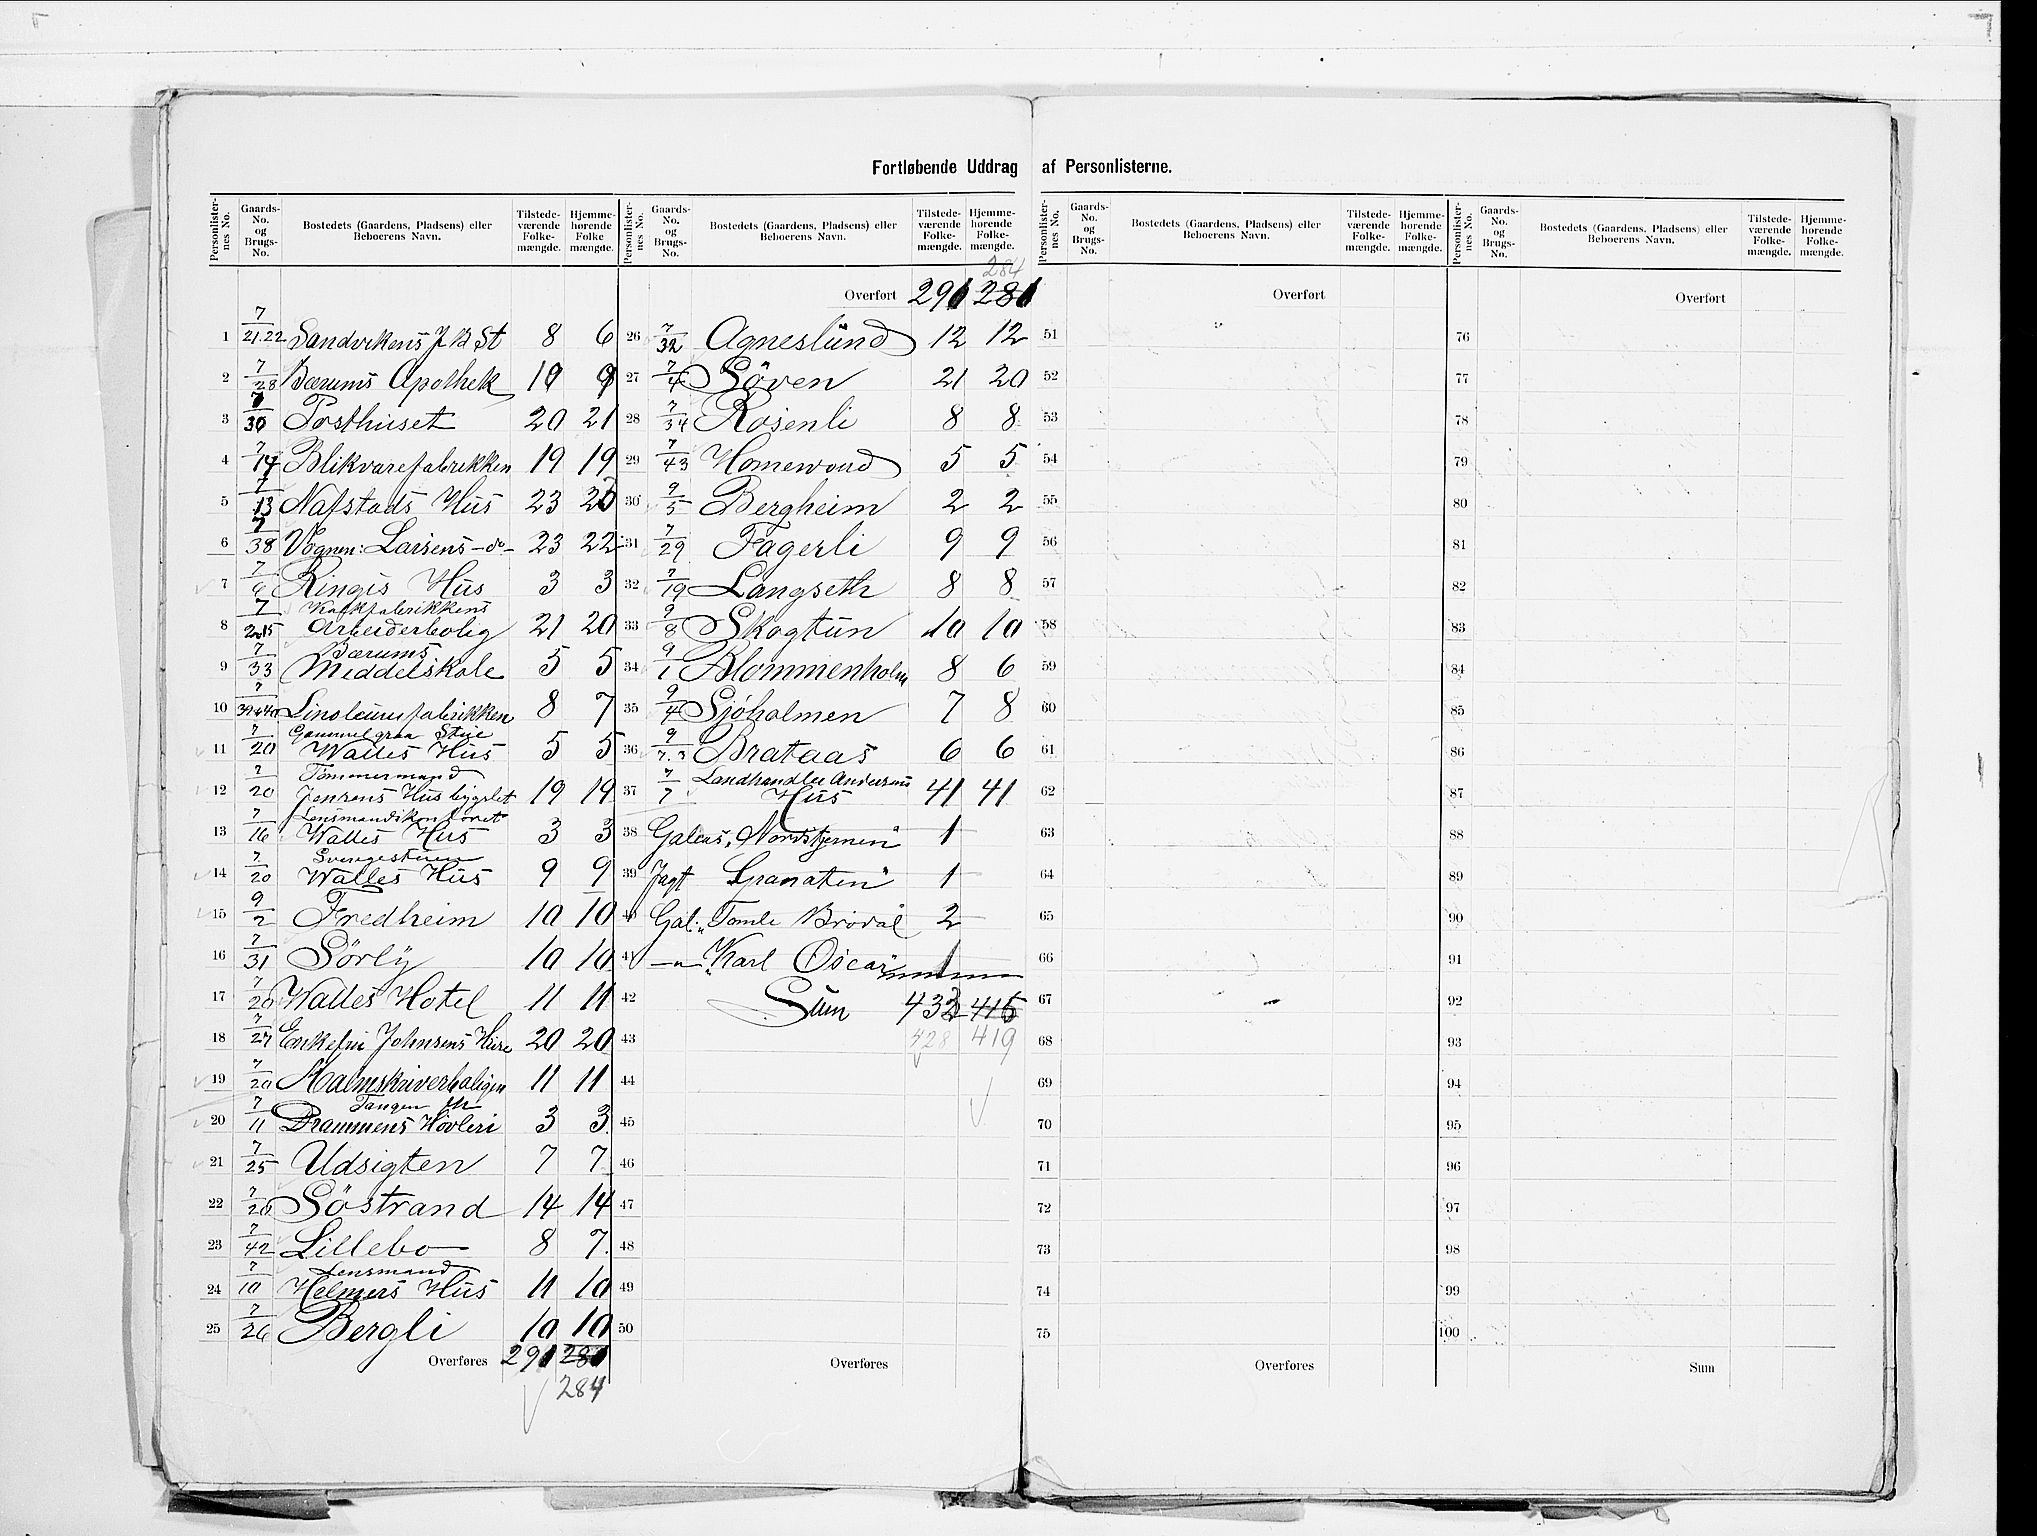 Fortløbende Uddrag af Personlisterne.
Personlisternes No. Gaards-No. og Brugs-No. Bostedets (Gaardens, Pladsens) eller Beboerens Navn. Tilstedeværende Folkemængde. Hjemmehørende Folkemængde.
1 7/21.22 Sandvikens J B St 8 6
2 7/28 Bærums Apothek
3 7/30 Posthuset 20 21
4 7/14 Blikvarefabrikken 19 19
5 7/13 Nafstads Hus 23
6 7/38 Vognm: Larsens -do- 23 22
7 7/6 Ringis Hus 3 3
8 7/2.15 Kalkfabrikkens
Arbeiderbolig 21 20
9 7/33 Bærums
Middelskole 5 5
10 7/39.40 Linoleumsfabrikken 8 7
11 7/20 Gammelgraa Stue
Walles Hus 5 5
12 7/20 Tømmermand
Jensens Hus bygslet 19 19
13 7/16 Lensmandskontoret
Walles Hus 3 3
14 7/20 Svingestuen
Walles Hus 9 9
15 9/2 Fredheim 10 10
16 7/31 Sörly 10 10
17 7/20 Walles Hotel 11 11
18 7/27 Enkefru Johnsens Hus 20 20
19 7/20 Malmskriverboligen 11 11
20 7/11 Tangen
Drammens Høvleri 3 3
21 7/25 Udsigten 7 7
22 7/20 Söstrand 14 14
23 7/42 Lillebo 8 7
24 7/10 Lensmand
Helmers Hus 11 10
25 7/26 Bergli 10 10
Overføres 291 281
284
284
Overført 291 281
26 7/32 Agneslund 12 12
27 7/4 Söven 21 20
28 7/34 Rosenli 8 8
29 7/43 Homewood 5 5
30 9/5 Bergheim 2 2
31 7/29 Fagerli 9 9
32 7/19 Langseth 8 8
33 9/8 Skogtun 10 10
34 9/1 Blommenholm 8 6
35 9/4 Sjöholmen 7 8
36 9/7.3 Brataas 6 6
37 7/7 Landhandler Andersens
Hus 41 41
38 Galeas "Nordstjernen" 1
39 Jagt Granaten" 1
40 Gal: "Tomle Brödal 2
41 -"- "Karl Oscar" 1
42 Sum 432 415
43 428 419
44
45
46
47
48
49
50
Overføres
Personlisternes No. Gaards-No. og Brugs-No. Bostedets (Gaardens, Pladsens) eller Beboerens Navn. Tilstedeværende Folkemængde. Hjemmehørende Folkemængde.
Overført
51
52
53
54
55
56
57
58
59
60
61
62
63
64
65
66
67
68
69
70
71
72
73
74
75
Overføres
Personlisternes No. Gaards-No. og Brugs-No. Bostedets (Gaardens, Pladsens) eller Beboerens Navn. Tilstedeværende Folkemængde. Hjemmehørende Folkemængde.
Overført
76
77
78
79
80
81
82
83
84
85
86
87
88
89
90
91
92
93
94
95
96
97
98
99
100
Sum